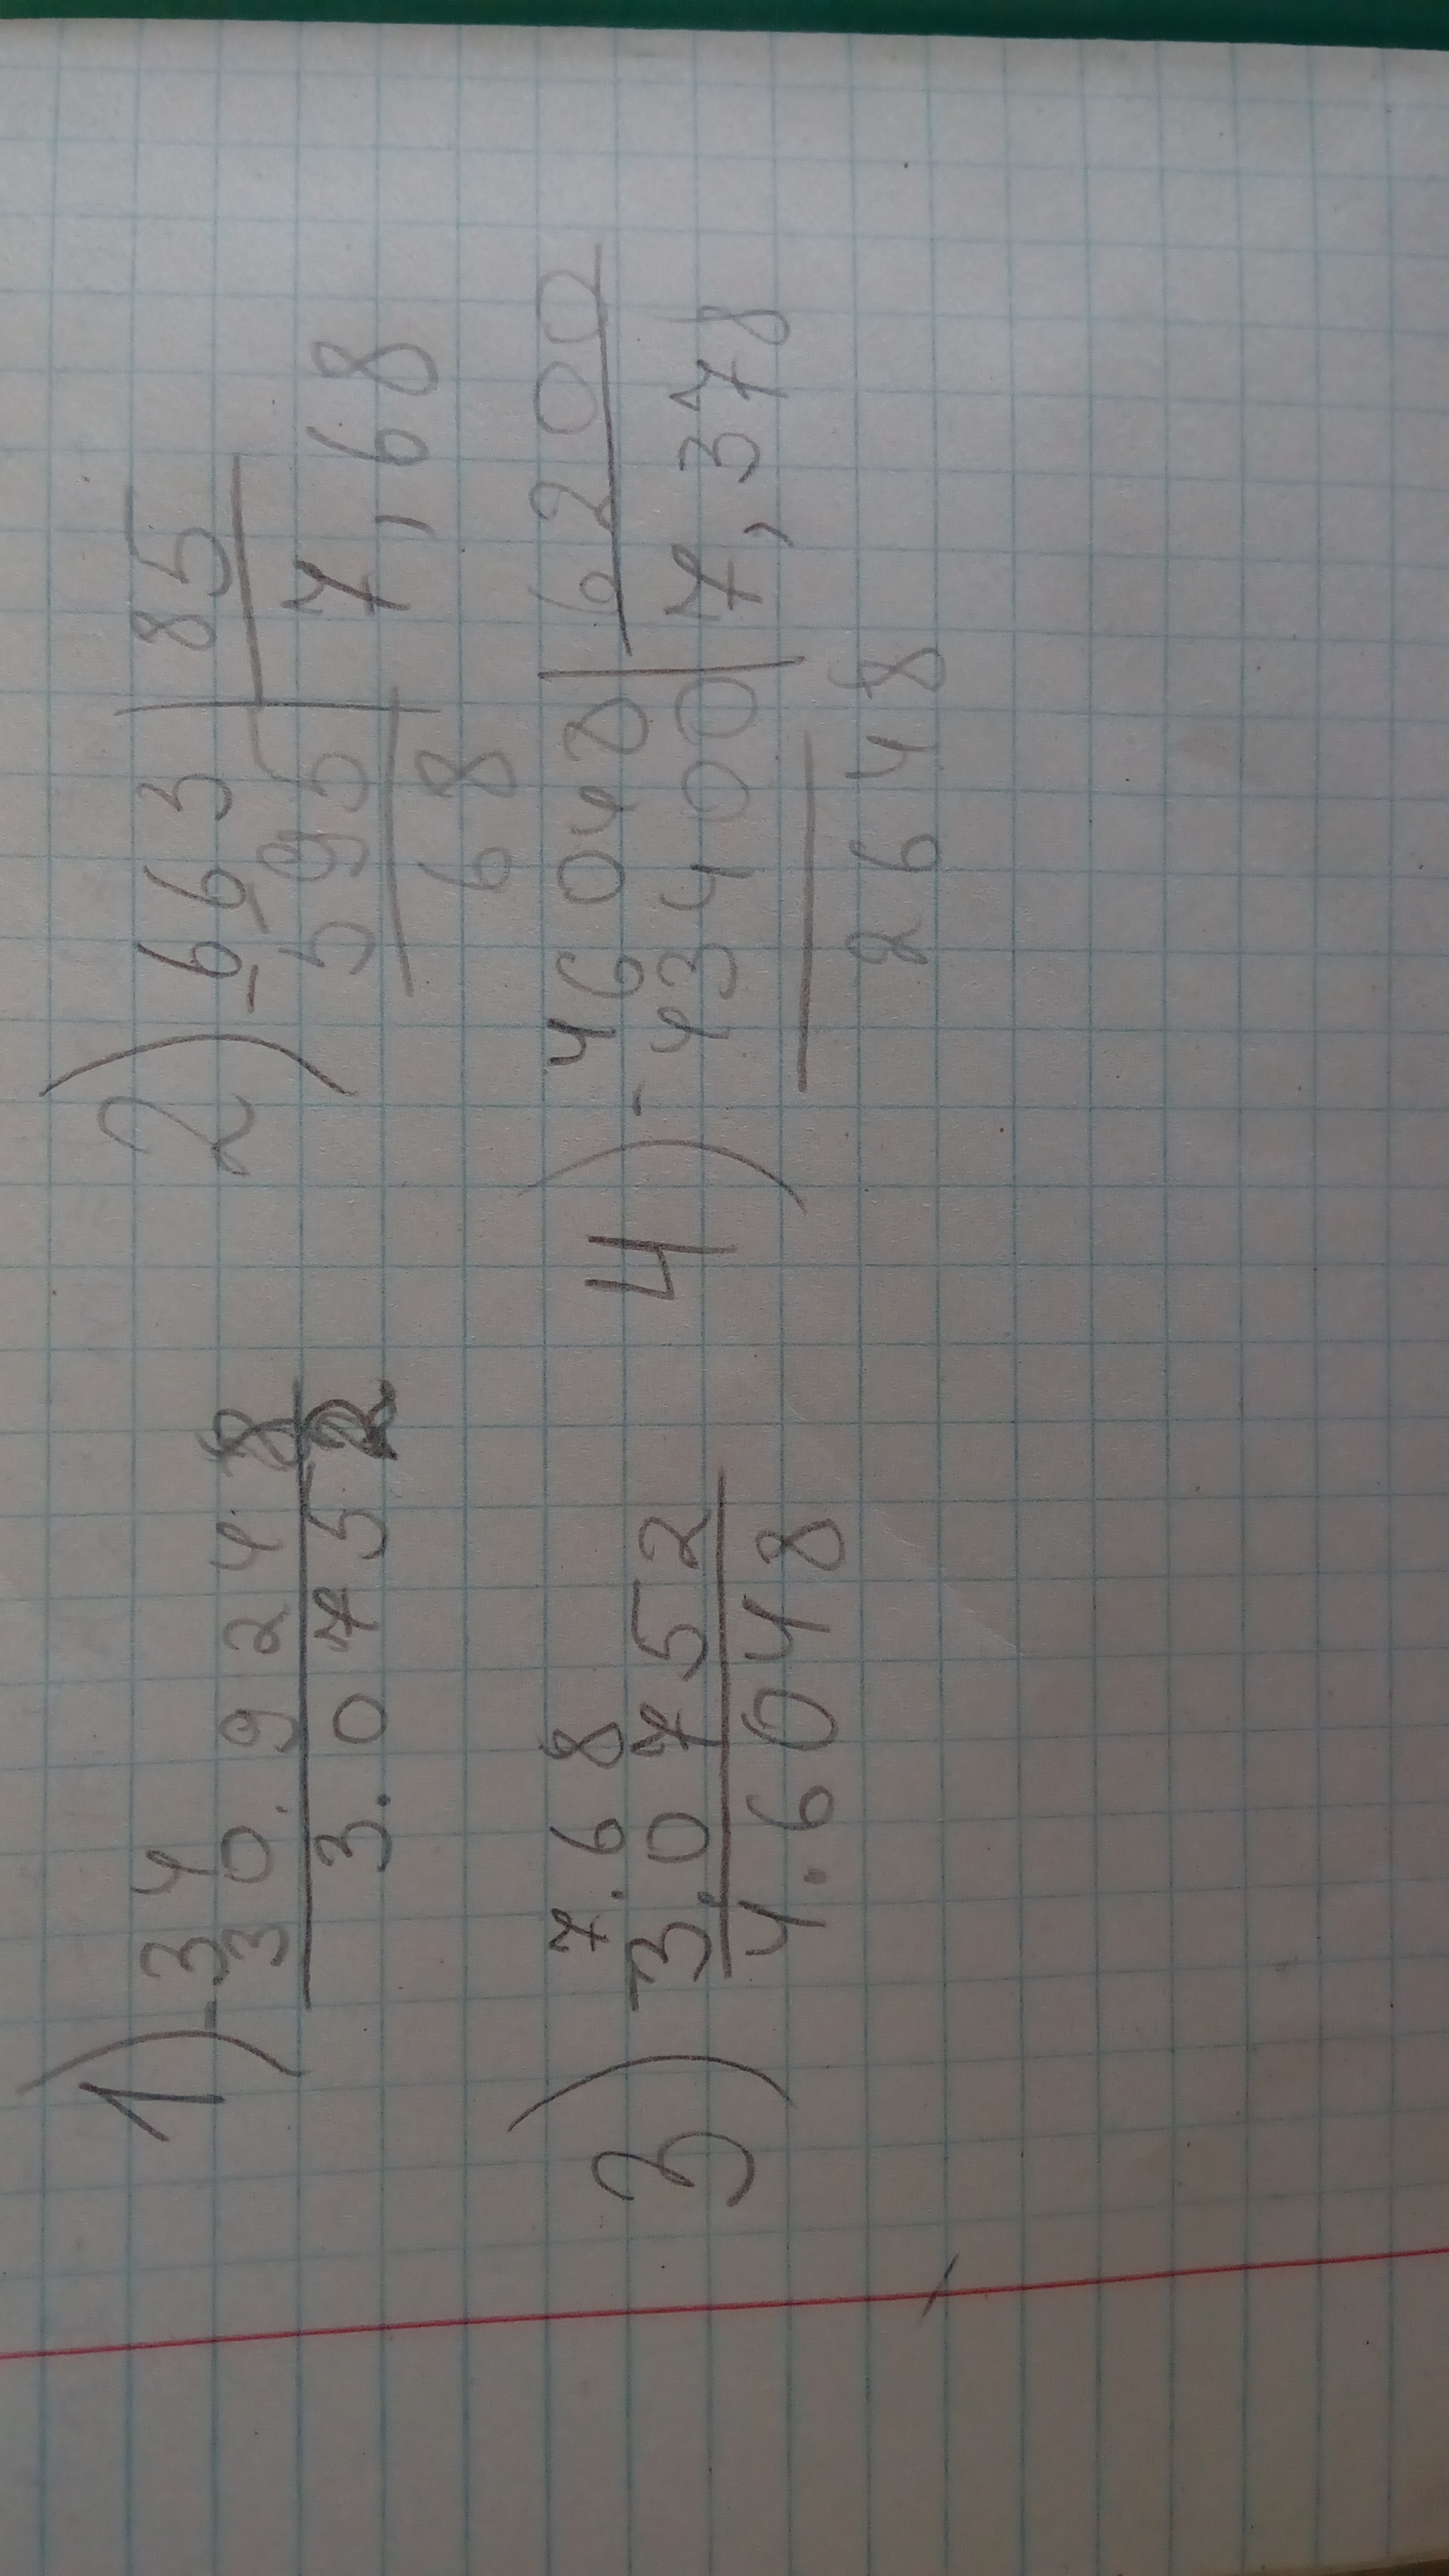 1) -34
30.9248
3.0752
2) -663 | 85
595 | 7,68
68
3) 7.68
-3.0752
4.6048
4) - 46048 | 6200
43400 | 7,378
2648